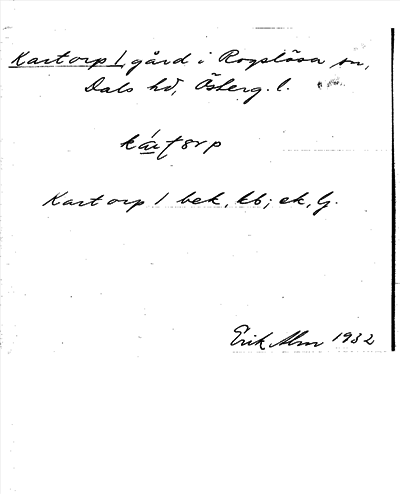 Kartorp /, gård i Rogslösa sn,
Dals hd, Österg. l.
Kartorp / bek, kb; ek, G.
Erik Alm 1932